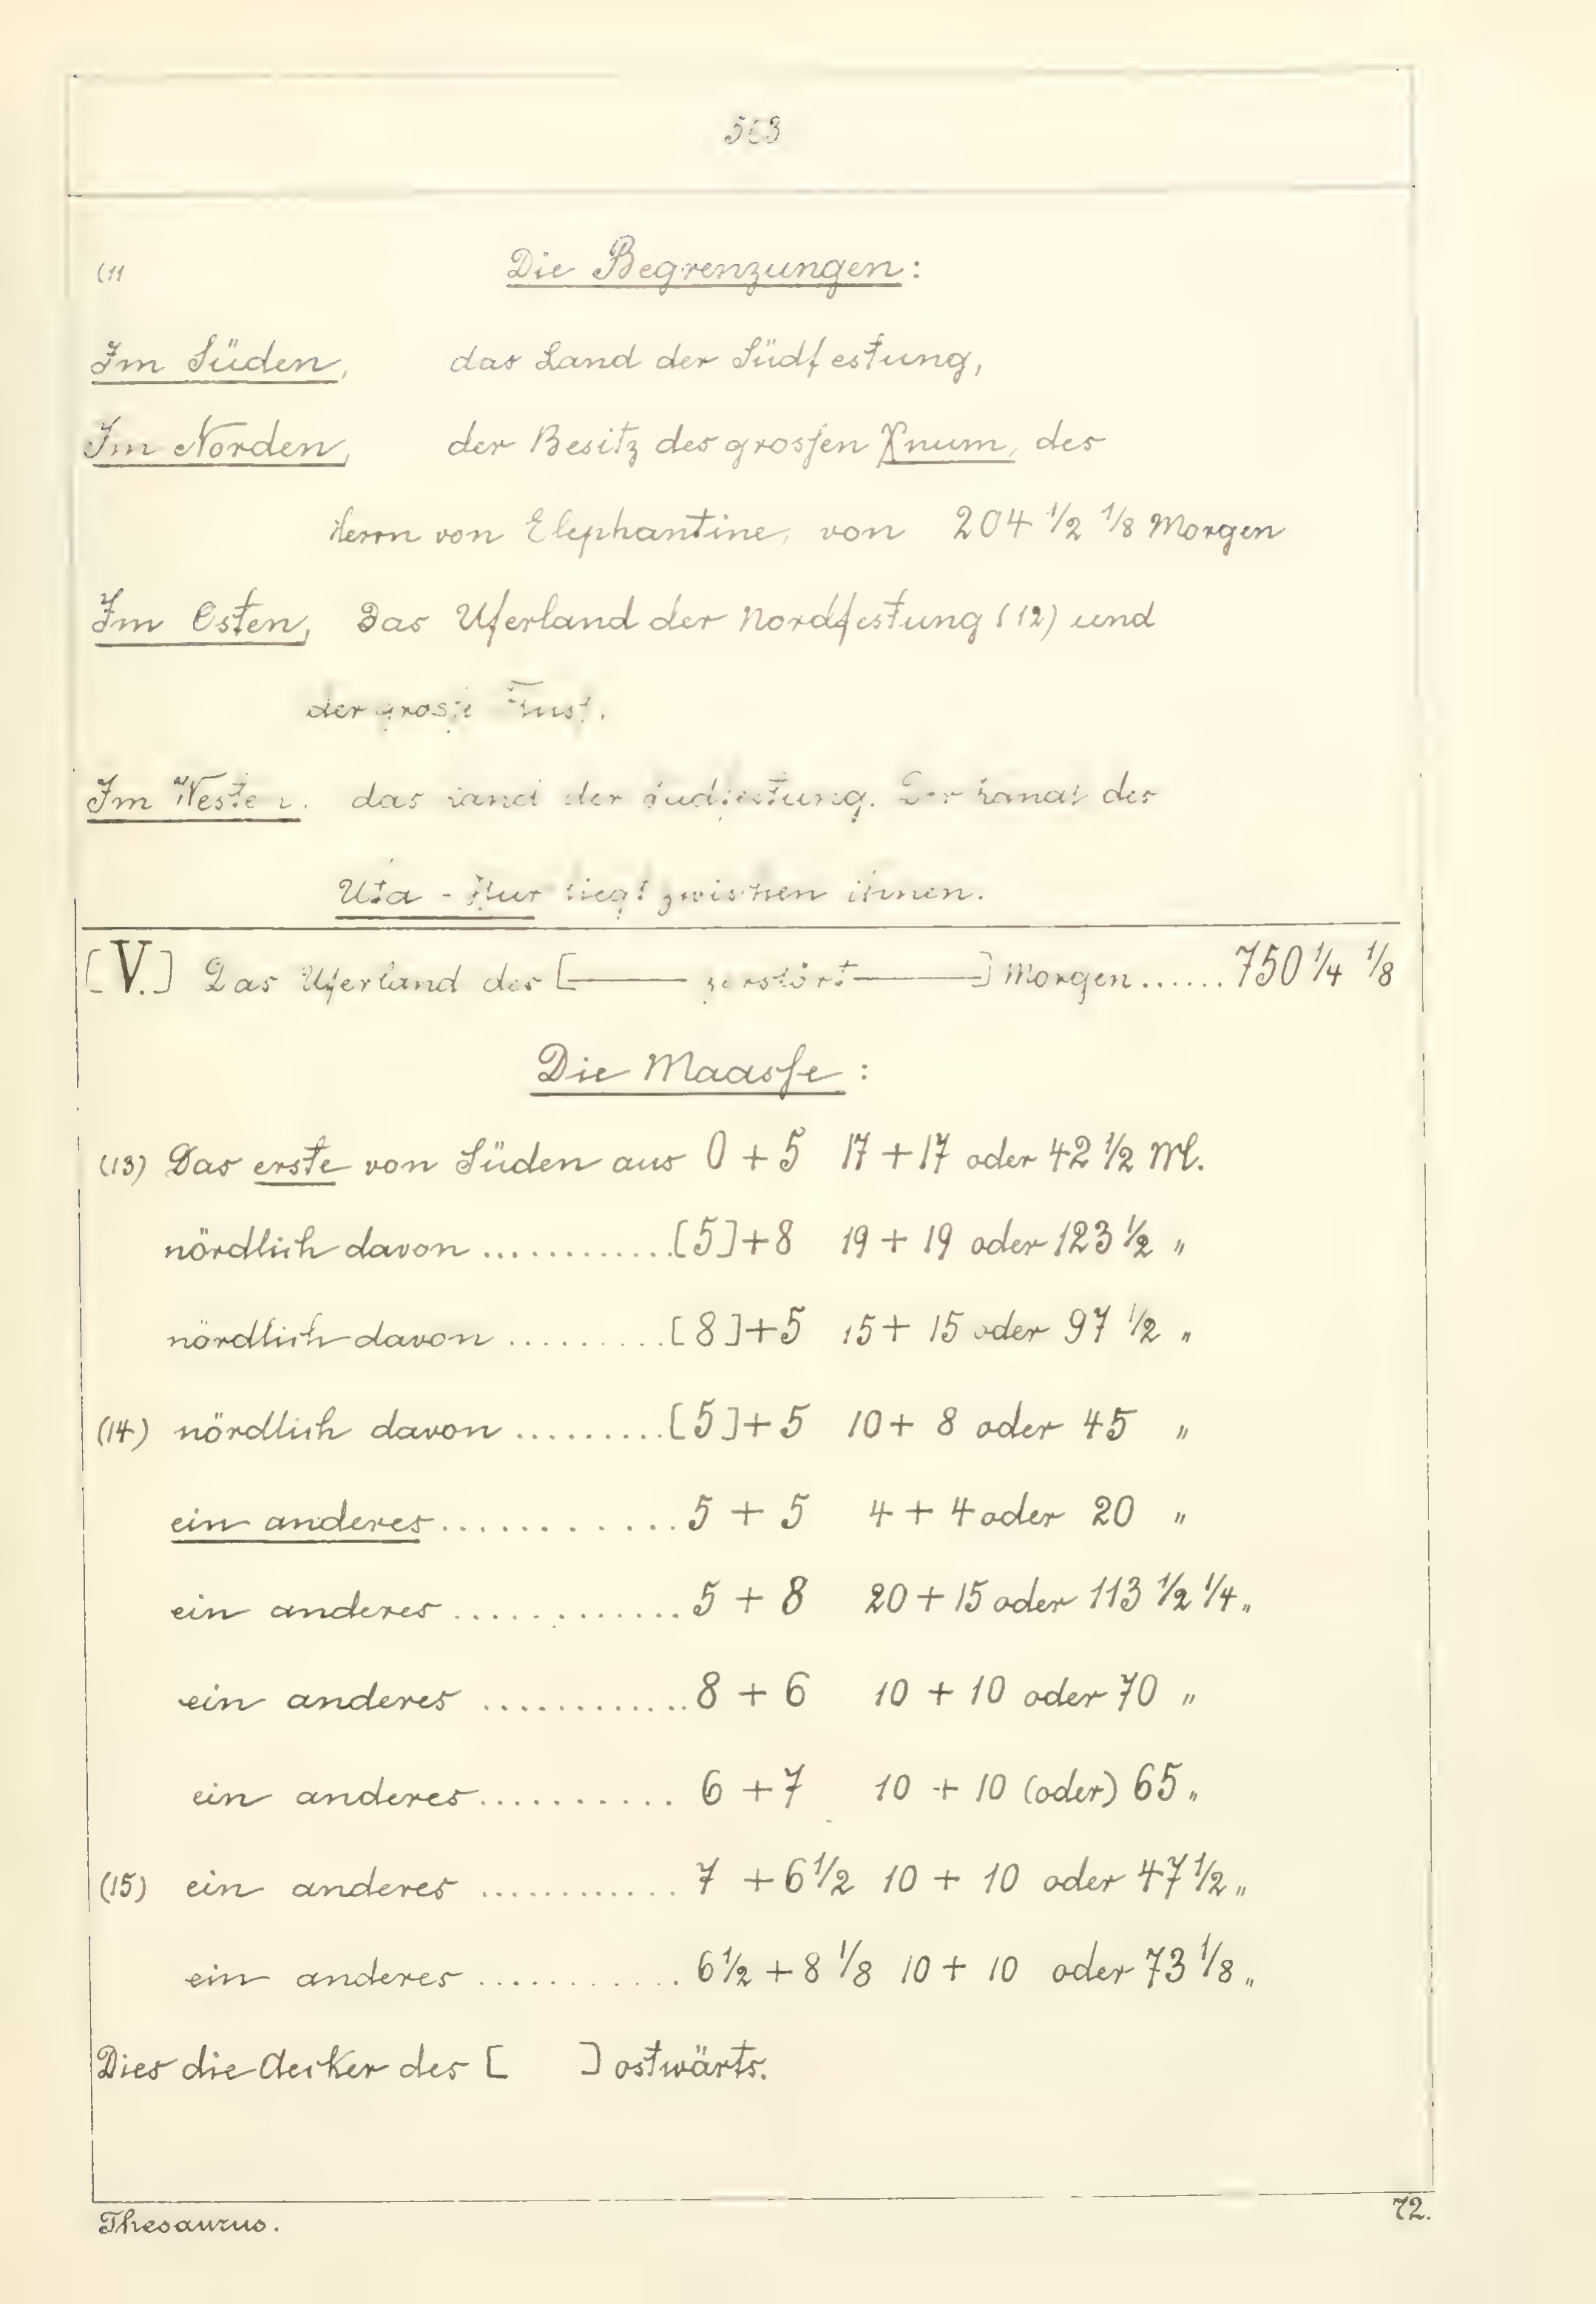 563
(11 Die Begrenzungen:
Im Süden, das Land der Südfestung,
Im Norden, der Besitz des grossen Xnum, des
Herrn von Elephantine, von 204 1/2 1/8 Morgen
Im Osten, Das Uferland der Nordfestung (12) und
der grosse Fluss.
Im Westen. das Land der Südfestung. Der Kanal der
Uta - Hur liegt zwischen ihnen.
[V.] Das Uferland des [—— zerstört ——] Morgen......750 1/4 1/8
Die Maasse:
(13) Das erste von Süden aus 0 + 5 17 + 17 oder 42 1/2 M.
nördlich davon ............[5]+8 19 + 19 oder 123 1/2 "
nördlich davon ..........[8]+5 15 + 15 oder 97 1/2 "
(14) nördlich davon ..........[5]+5 10 + 8 oder 45 "
ein anderes............5 + 5 4 + 4 oder 20 "
ein anderes............5 + 8 20 + 15 oder 113 1/2 1/4 "
ein anderes ............8 + 6 10 + 10 oder 70 "
ein anderes.......... 6 + 7 10 + 10 (oder) 65 "
(15) ein anderes ............ 7 + 6 1/2 10 + 10 oder 47 1/2 "
ein anderes ............ 6 1/2 + 8 1/8 10 + 10 oder 73 1/8 "
Dies die Aecker des [ ] ostwärts.
Thesaurus. 72.